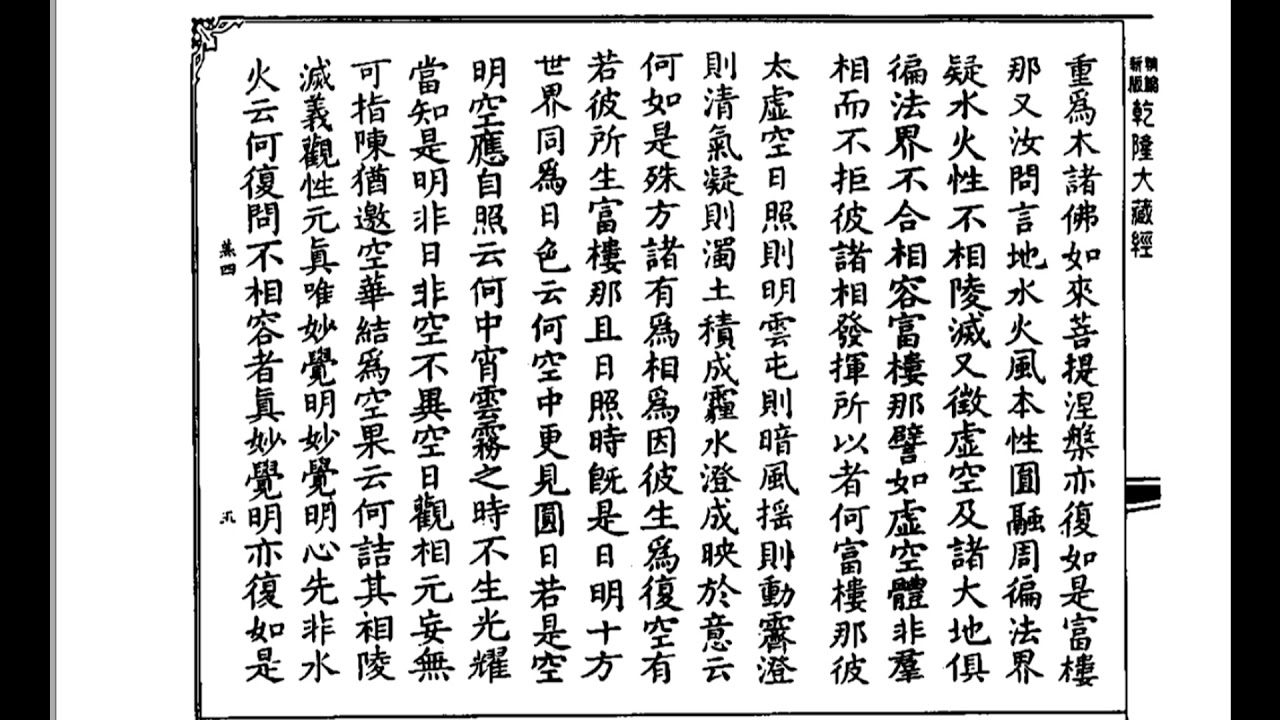 新編
新版
乾隆大藏經
重為木諸佛如來菩提涅槃亦復如是富樓
那又汝問言地水火風本性圓融周徧法界
疑水火性不相陵滅又徵虛空及諸大地俱
徧法界不合相容富樓那譬如虛空體非羣
相而不拒彼諸相發揮所以者何富樓那彼
太虛空日照則明雲屯則暗風搖則動霽澄
則清氣凝則濁土積成霾水澄成映於意云
何如是殊方諸有為相為因彼生為復空有
若彼所生富樓那且日照時旣是日明十方
世界同為日色云何空中更見圓日若是空
明空應自照云何中宵雲霧之時不生光耀
當知是明非日非空不異空日觀相元妄無
可指陳猶邀空華結為空果云何詰其相陵
滅義觀性元真唯妙覺明妙覺明心先非水
火云何復問不相容者真妙覺明亦復如是